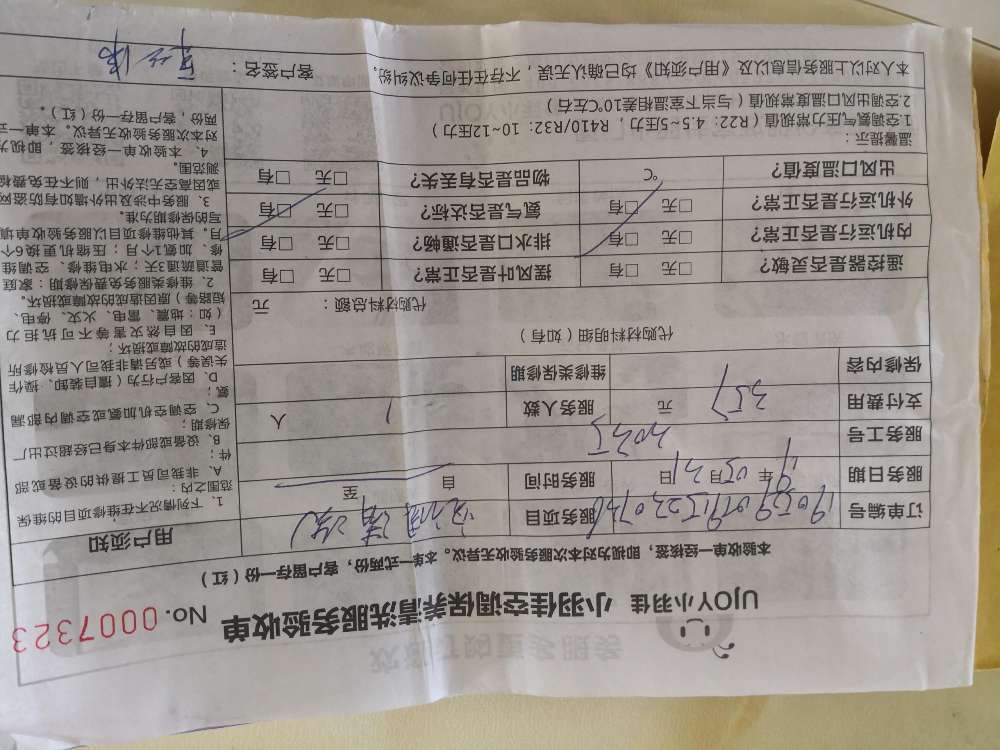 UJOY小羽佳 小羽佳空调保养清洗服务验收单 No. 0007323
本验收单一经核签，即视为对本次服务验收无异议。本单一式两份，客户留存一份（红）
订单编号 服务项目 空调清洗
服务日期 19年05月31日 服务时间 自 至
服务工号
支付费用 357元 服务人数 1人
保修内容 维修类保修期
代购材料明细（如有）
代购材料总额： 元
遥控器是否灵敏? □无 □有 摆风叶是否正常? □无 □有
内机运行是否正常? □无 □有 排水口是否通畅? □无 □有
外机运行是否正常? □无 □有 氨气是否达标? □无 □有
出风口温度值? ℃ 物品是否有丢失? □无 □有
温馨提示：
1.空调氨气压力常规值（R22：4.5~5压力，R410/R32：10~12压力）
2.空调出风口温度常规值（与当下室温相差10℃左右）
本人对以上服务信息以及《用户须知》均已确认无误，不存在任何争议纠纷。 客户签名：
用户须知
1、下列情况不在维修项目的维保
范围之内：
A、非我司员工提供的设备或部
件；
B、设备或部件本身已经超过出厂
保修期；
C、空调空机加氨或空调内部漏
氨；
D、因客户行为（擅自装卸、操作
失误等）或另请非我司人员检修所
造成的故障或损坏；
E、因自然灾害等不可抗拒力
（如：地震、雷电、火灾、停电、
短路等）原因造成的故障或损坏。
2、维修类服务免费保修期：家庭
管道疏通3天；水电维修、空调维
修、加氨1个月；压缩机更换6个
月。其他维修项目以服务验收单填
写的保修期为准。
3、服务中涉及出外墙如有防盗网
或因高空无法外出，则不在免费检
测范围。
4、本验收单一经核签，即视为
对本次服务验收无异议。本单一式
两份，客户留存一份（红）。